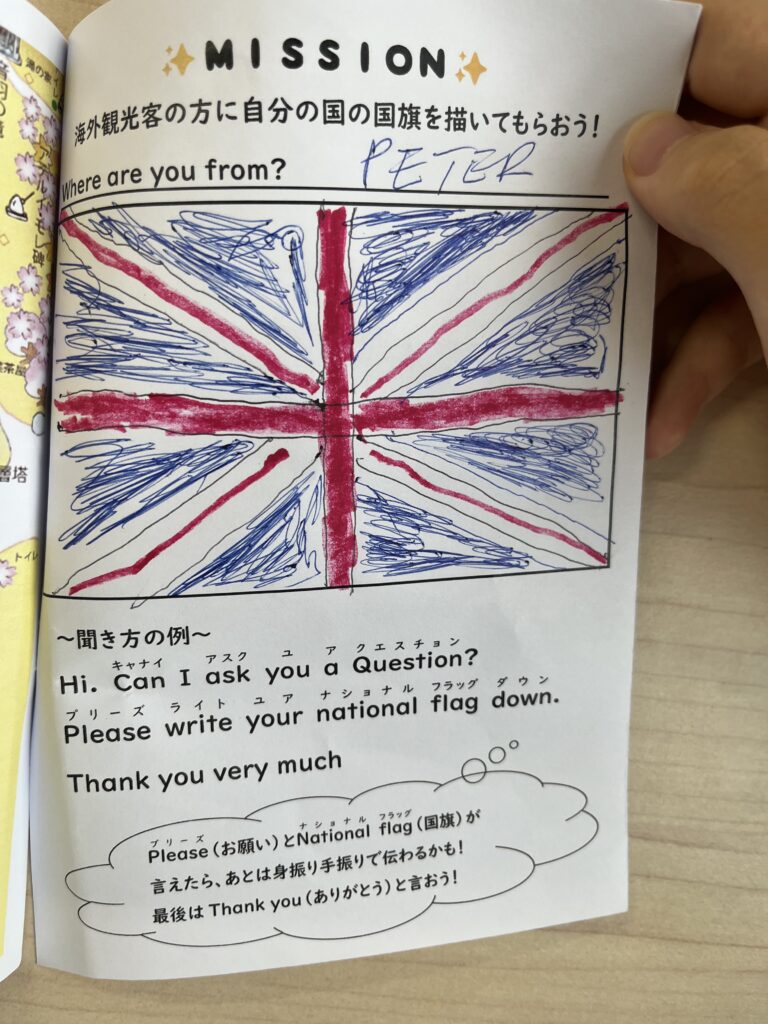 MISSION
海外観光客の方に自分の国の国旗を描いてもらおう!
Where are you from? PETER
~聞き方の例~
キャナイ アスク ユ ア クエスチョン
Hi. Can I ask you a Question?
プリーズ ライト ユア ナショナル フラッグ ダウン
Please write your national flag down.
Thank you very much
プリーズ ナショナル フラッグ
Please(お願い)とNational flag(国旗)が
言えたら、あとは身振り手振りで伝わるかも!
最後は Thank you(ありがとう)と言おう!
層塔
トイレ